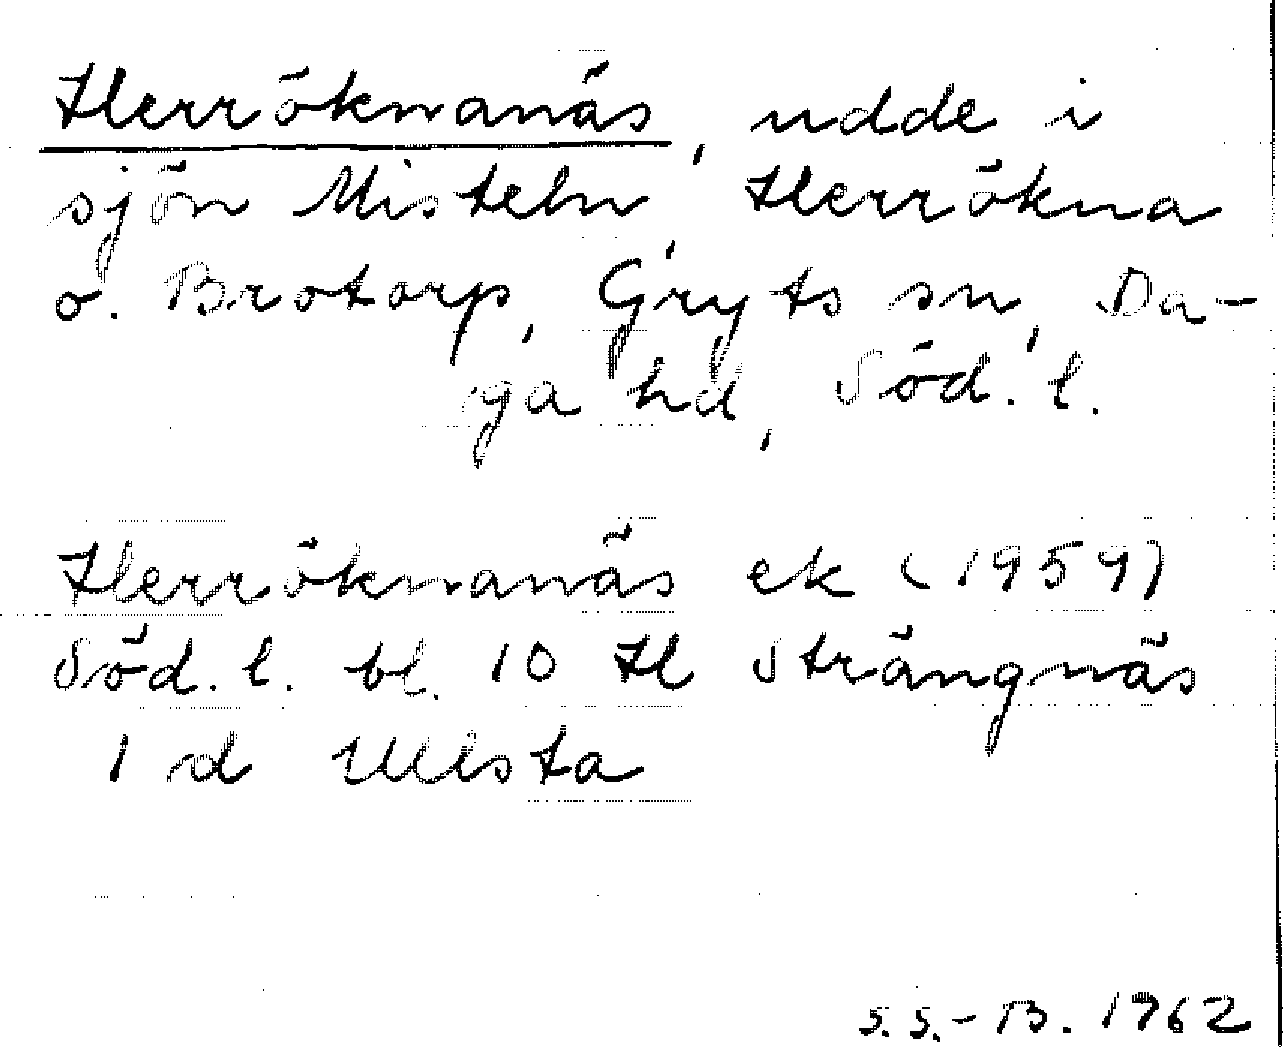 Herröknanäs, udde i
sjön Misteln, Herrökna
o. Brotorp, Gryts sn, Da-
ga hd, Söd. l.
Herröknanäs ek (1959)
Söd. l. bl. 10 H Strängnäs
1 d Ullsta
S. S.-B. 1962